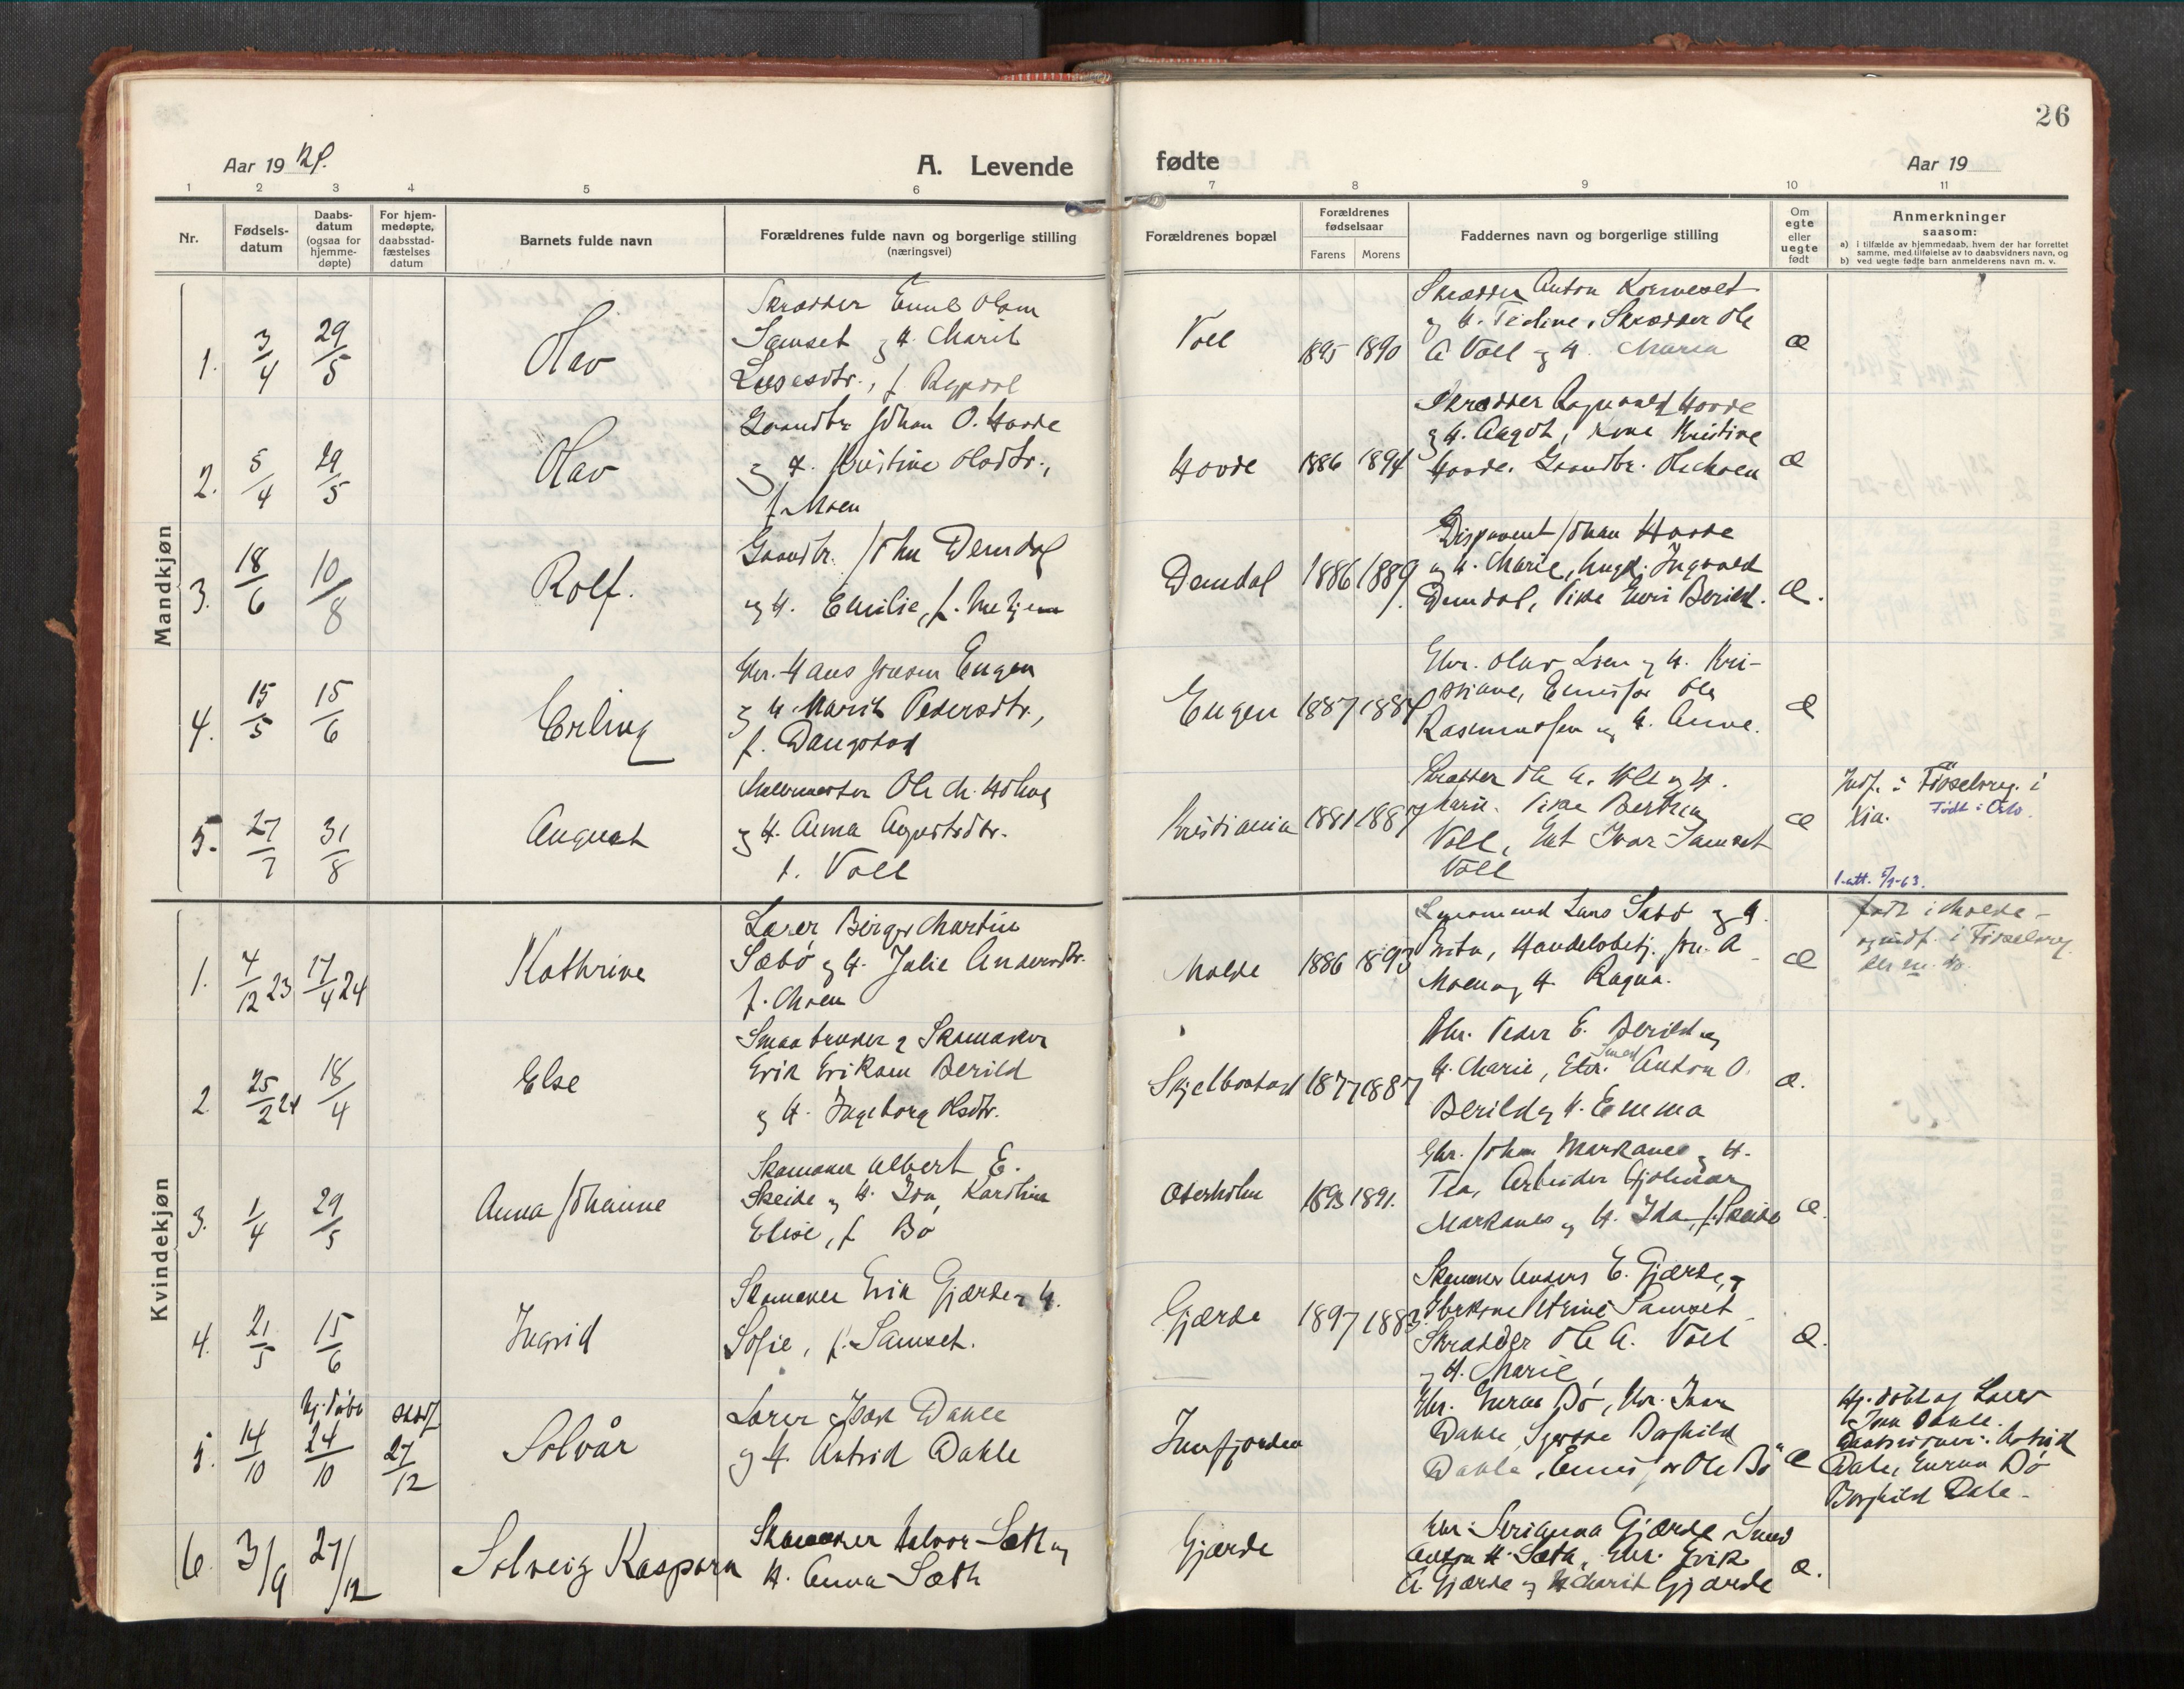 26
Aar 1924.
A. Levende
fødte
Aar 19
1 2 3 4 5 6 7 8 9 10 11
Nr.
Fødsels-
datum
Daabs-
datum
(ogsaa for
hjemme-
døpte)
For hjem-
medøpte,
daabsstad-
fæstelses
datum
Barnets fulde navn
Forældrenes fulde navn og borgerlige stilling
(næringsvei)
Forældrenes bopæl
Forældrenes
fødselsaar
Farens Morens
Faddernes navn og borgerlige stilling
Om
egte
eller
uegte
født
Anmerkninger
saasom:
a) i tilfælde av hjemmedaab, hvem der har forrettet
samme, med tilføielse av to daabsvidners navn, og
b) ved uegte fødte barn anmelderens navn m. v.
Mandkjøn
1. 3/4 29/5 Olav
Skrædder
Samset og H. Marit
Voll 1895 1890
Skrædder Anton
Skrædder Ole
A Voll og H. Maria
æ
2. 5/4 29/5 Olav
Gaardbr Johan O. Hovde
og H. Kristine Olsdtr.,
f. Moen
Hovde 1886 1894
Skrædder Ragnvald Hovde
og H. Aagot, Kone Kristine
Hovde. Gaardbr. Ole Moen
æ
3. 18/6 10/8 Rolf.
Gaardbr. John Demdal
og H. Emilie, f.
Demdal 1886 1889
Disponent Johan Hovde
og H. Marie, Ungk. Ingvald
Demdal, Pike Berild.
æ.
4. 15/5 15/6 Erling
Hans Engen
og H. Marit Pedersdtr.,
f. Dangstad
Engen 1887 1884
Gbr. Olav Lien og H. Kri-
stiane, Ole
Rasmussen og H. Anne.
æ
5. 27/7 31/8 August
Malermester Ole
og H. Anna Augustsdtr.
f. Voll
Kristiania 1881 1887
Skrædder Ole A. Voll og H.
Marie. Pike
Voll, Ivar Samset
Voll
æ
Indf. i Fødselsreg. i
Kra. Født i Oslo.
1. att. 63.
Kvindekjøn
1. 4/12 23 17/4 24 Kathrine
Lærer Birger Martin
Sæbø og H. Julie Andersdtr.
f. Moen
Molde 1886 1893
Lars Sæbø og H.
Handelsbetj. A
Moen og H. Ragna.
æ
født i Molde -
og indf. i Fødselsreg.
2 25/2 24 18/4 Else
Smaabruker og Skomaker
Erik Eriksen Berild
og H. Ingeborg Olsdtr.
Skjelbostad 1877 1887
Gbr. Peder E. Berild og
H. Marie, Smed Anton O.
Berild og H. Emma
æ.
3. 1/4 29/5 Anna Johanne
Skomaker Albert E.
Skeide og H. Ida Karoline
Elise, f Bø
Oterholm 1893 1891.
Gbr. Johan Markanes og H.
Tea, Arbeider Hjalmar
Markanes og H. Ida, f. Skeide
æ.
4. 21/5 15/6 Ingrid
Skomaker Erik Gjærde og H.
Sofie, f. Samset.
Gjærde 1897 1883
Skomaker Anders E. Gjærde, og
Samset
Skrædder Ole A. Voll
og H. Marie,
æ.
5. 14/10 hj.døbt 24/10 stadf 27/12 Solvår
Lærer Isak Dahle
og H. Astrid Dahle
Innfjorden
Bø,
Dahle, Borghild
Dahle, Ole Bø
æ
Hj. døbt av Lærer
Dahle.
Daabsvidner: Astrid
Dale, Bø
Borghild Dale.
6. 3/9 27/12 Solveig Kaspara
Skomaker Halvor Sæth og
H. Anna Sæth
Gjærde
Gjærde, Smed
Anton H. Sæth, Gbr. Erik
A. Gjærde og H. Marit Gjærde
æ.